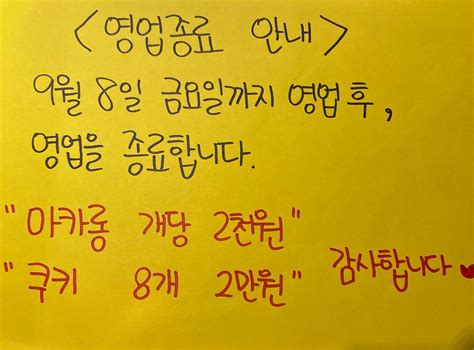 <영업종료 안내>
9월 8일 금요일까지 영업 후,
영업을 종료합니다.
"마카롱 개당 2천원"
"쿠키 8개 2만원" 감사합니다♥